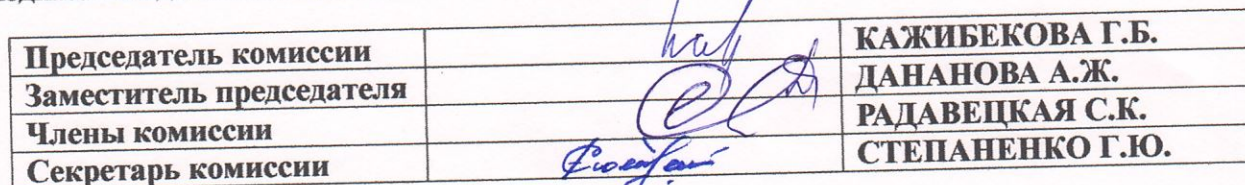 Председатель комиссии КАЖИБЕКОВА Г.Б.
Заместитель председателя ДАНАНОВА А.Ж.
Члены комиссии РАДАВЕЦКАЯ С.К.
Секретарь комиссии СТЕПАНЕНКО Г.Ю.